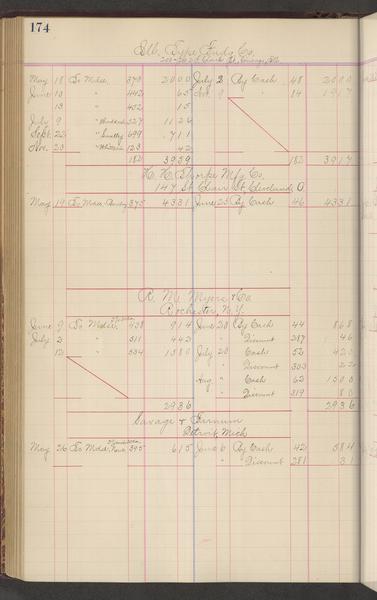 174
Ill. Type Fndy. Co.
Chicago, Ill.
May 18 To Mdse. 370 2000 July 2 By Cash 48 2000
June 10 " 442 65 Nov. 9 " 14 1917
13 " 452 15
July 9 " 527 1126
Sept. 22 " Smelting 699 711
Nov. 23 " 123 42
182 3959 182 3917
H. H. Thorpe Mfg Co.
147 St. Clair St. Cleveland, O
May 19 To Mdse. 375 4331 June 25 By Cash 46 4331
R. M. Myers & Co
Rochester, N.Y.
June 9 To Mdse. 438 914 June 20 By Cash 44 868
July 2 " 511 442 " Discount 287 46
12 " 534 1580 July 20 Cash 52 420
" Discount 303 22
Aug " Cash 62 1500
" Discount 319 80
2936 2936
Savage & Farnum
Detroit, Mich
May 26 To Mdse. 395 615 June 6 By Cash 42 584
" Discount 281 31